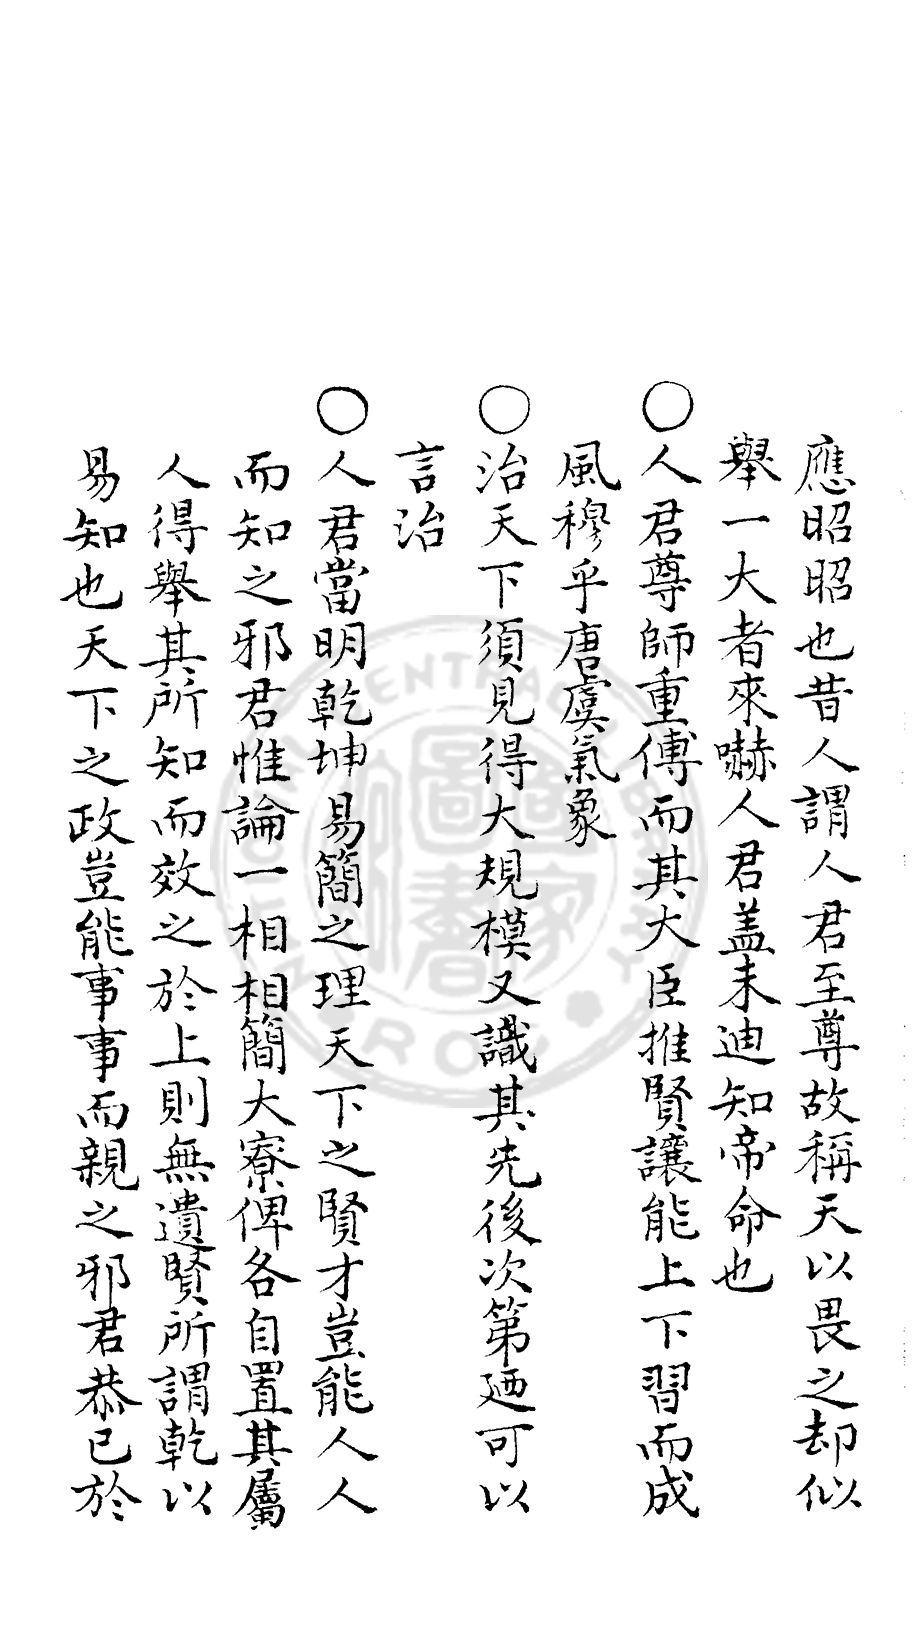 應昭昭也昔人謂人君至尊故稱天以畏之却似
舉一大者來嚇人君盖未迪知帝命也
○人君尊師重傅而其大臣推賢讓能上下習而成
風穆乎唐虞氣象
○治天下須見得大規模又識其先後次第廼可以
言治
○人君當明乾坤易簡之理天下之賢才豈能人人
而知之邪君惟論一相相簡大寮俾各自置其屬
人得舉其所知而效之於上則無遺賢所謂乾以
易知也天下之政豈能事事而親之邪君恭已於